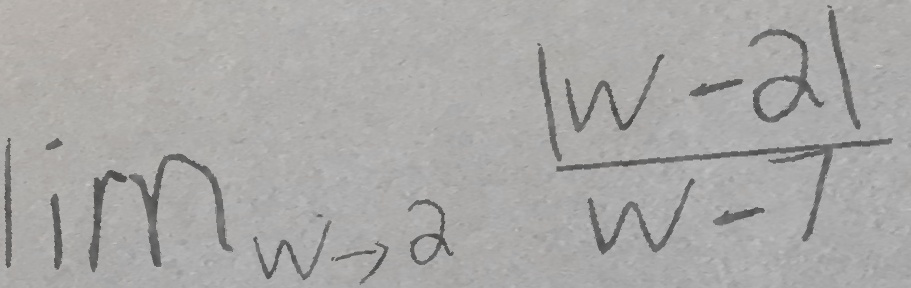 lim_{w→2} \frac{|w-2|}{w-7}